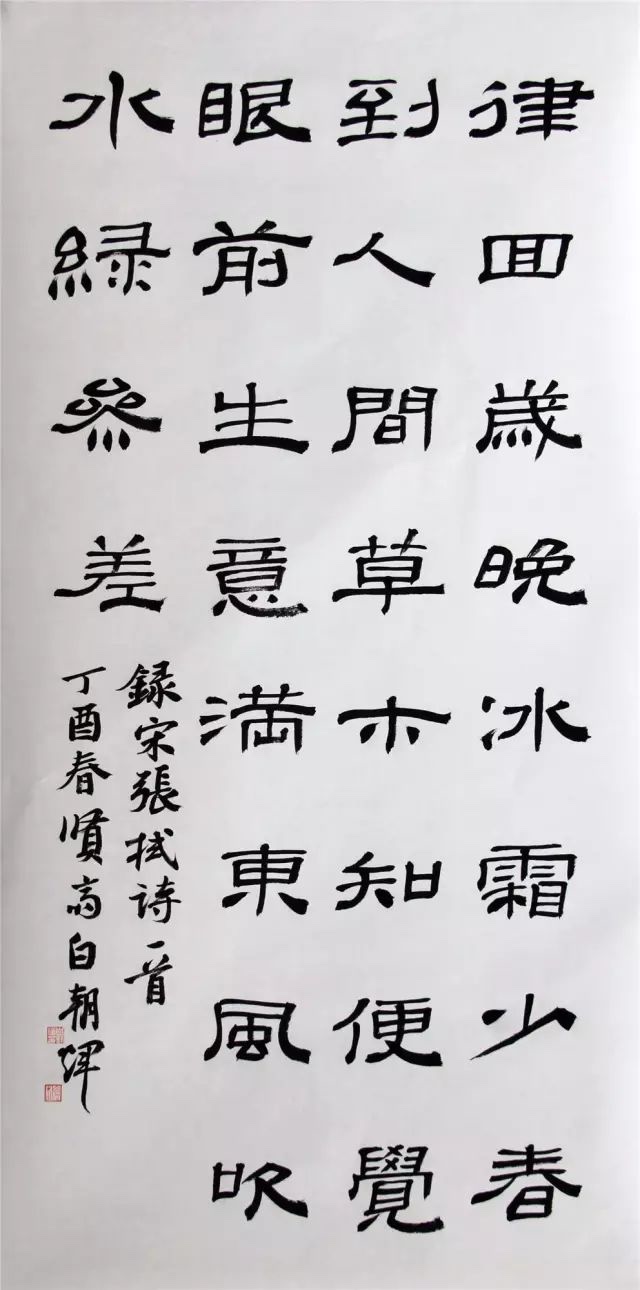 律回歲晚冰霜少春
到人間草木知便覺
眼前生意滿東風吹
水緑參差
録宋張栻詩一首
丁酉春賢斋白朝輝